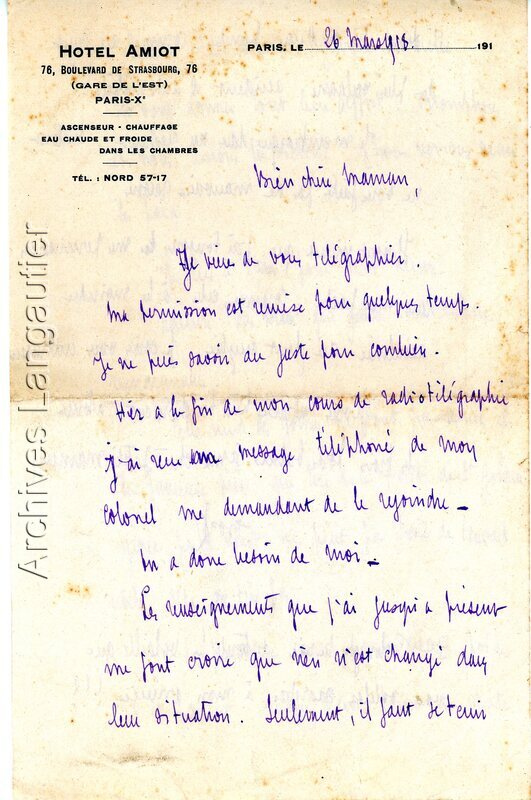 HOTEL AMIOT
76, BOULEVARD DE STRASBOURG, 76
(GARE DE L'EST)
PARIS-Xᵉ
ASCENSEUR - CHAUFFAGE
EAU CHAUDE ET FROIDE
DANS LES CHAMBRES
TÉL. : NORD 57-17
PARIS, LE 26 Mars 1918. 191
Bien chère Maman,
Je viens de vous télégraphier.
Ma permission est remise pour quelques temps.
Je ne puis savoir au juste pour combien.
Hier a la fin de mon cours de radiotélégraphie
j'ai reçu un message téléphoné de mon
Colonel me demandant de le rejoindre _
On a donc besoin de moi _
Les renseignements que j'ai jusqu'a présent
me font croire que rien n'est changé dans
leur situation. Seulement, il faut se tenir
Archives Langautier